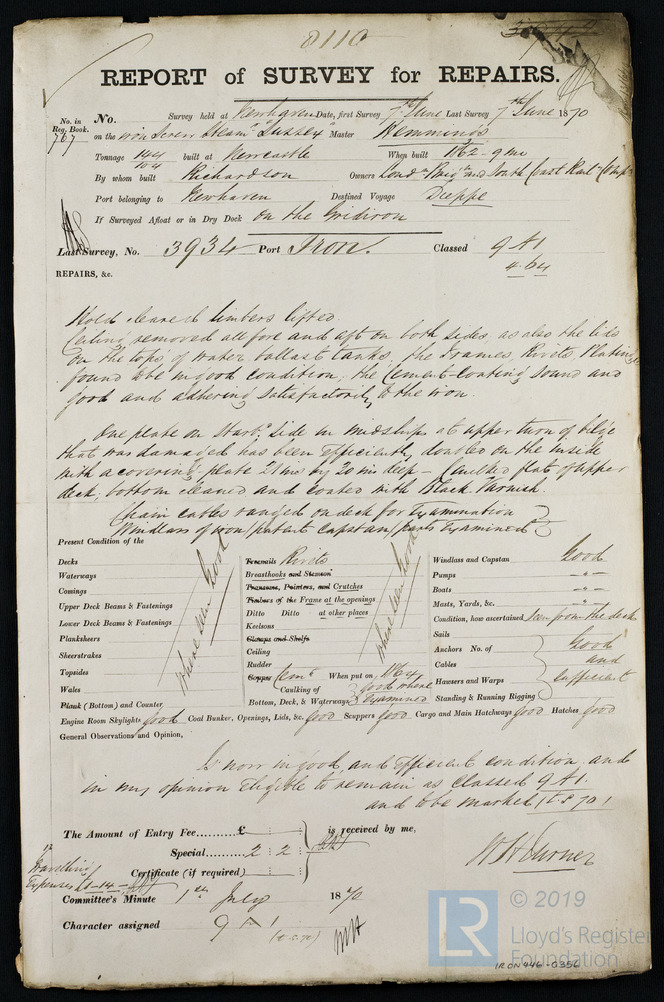 8110
REPORT of SURVEY for REPAIRS.
No. in Reg. Book. 767
No. Survey held at Newhaven Date, first Survey 7th June Last Survey 7th June 1870
on the iron Screw Steamr "Sussex" Master Hemmings
Tonnage 144/104 built at Newcastle When built 1862 - 9 mo
By whom built Richardson Owners Lond. Brign and South Coast Rail. Comp
Port belonging to Newhaven Destined Voyage Dieppe
If Surveyed Afloat or in Dry Dock on the Gridiron
Last Survey, No. 3934 Port Iron. Classed 9 A1
4.64
REPAIRS, &c.
Hold cleared limbers lifted.
Ceiling removed all fore and aft on both sides, as also the lids
on the tops of water ballast tanks, the Frames, Rivets, Plating &c
found to be in good condition, the Cement-Coating sound and
good and adhering satisfactorily to the iron.
One plate on Starbd. Side in midships at upper turn of bilge
that was damaged has been efficiently doubled on the inside
with a covering-plate 21 ins by 20 ins deep - Caulked flat of upper
deck; bottom cleaned and coated with Black Varnish.
Chain cables ranged on deck for Examination
Windlass of iron/patent Capstan/parts Examined
Present Condition of the
Decks
Waterways
Comings
Upper Deck Beams & Fastenings
Lower Deck Beams & Fastenings
Planksheers
Sheerstrakes
Topsides
Wales
Plank (Bottom) and Counter
where seen Good
Treenails Rivets
Breasthooks and Stemson
Transoms, Pointers, and Crutches
Timbers of the Frame at the openings
Ditto Ditto at other places
Keelsons
Clamps and Shelfs
Ceiling
Rudder
Copper Cemt When put on, 1864
Caulking of Bottom, Deck, & Waterways good where Examined
where seen Good
Windlass and Capstan Good
Pumps -"-
Boats -"-
Masts, Yards, &c. -"-
Condition, how ascertained Seen from the deck
Sails
Anchors No. of
Cables
Hawsers and Warps
Standing & Running Rigging
Good and sufficient
Engine Room Skylights good Coal Bunker, Openings, Lids, &c. good Scuppers good Cargo and Main Hatchways good Hatches good
General Observations and Opinion,
Is now in good and Efficient condition and
in my opinion Eligible to remain as Classed 9 A1.
and to be marked
The Amount of Entry Fee......£ : : is received by me,
Special..... 2 : 2 :
Certificate (if required)
Travelling Expenses £ - 14 -
W H Turner
Committee's Minute 1st July 1870
Character assigned 9 A 1
© 2019
LR
Lloyd's Register
Foundation
IRON 446-0356